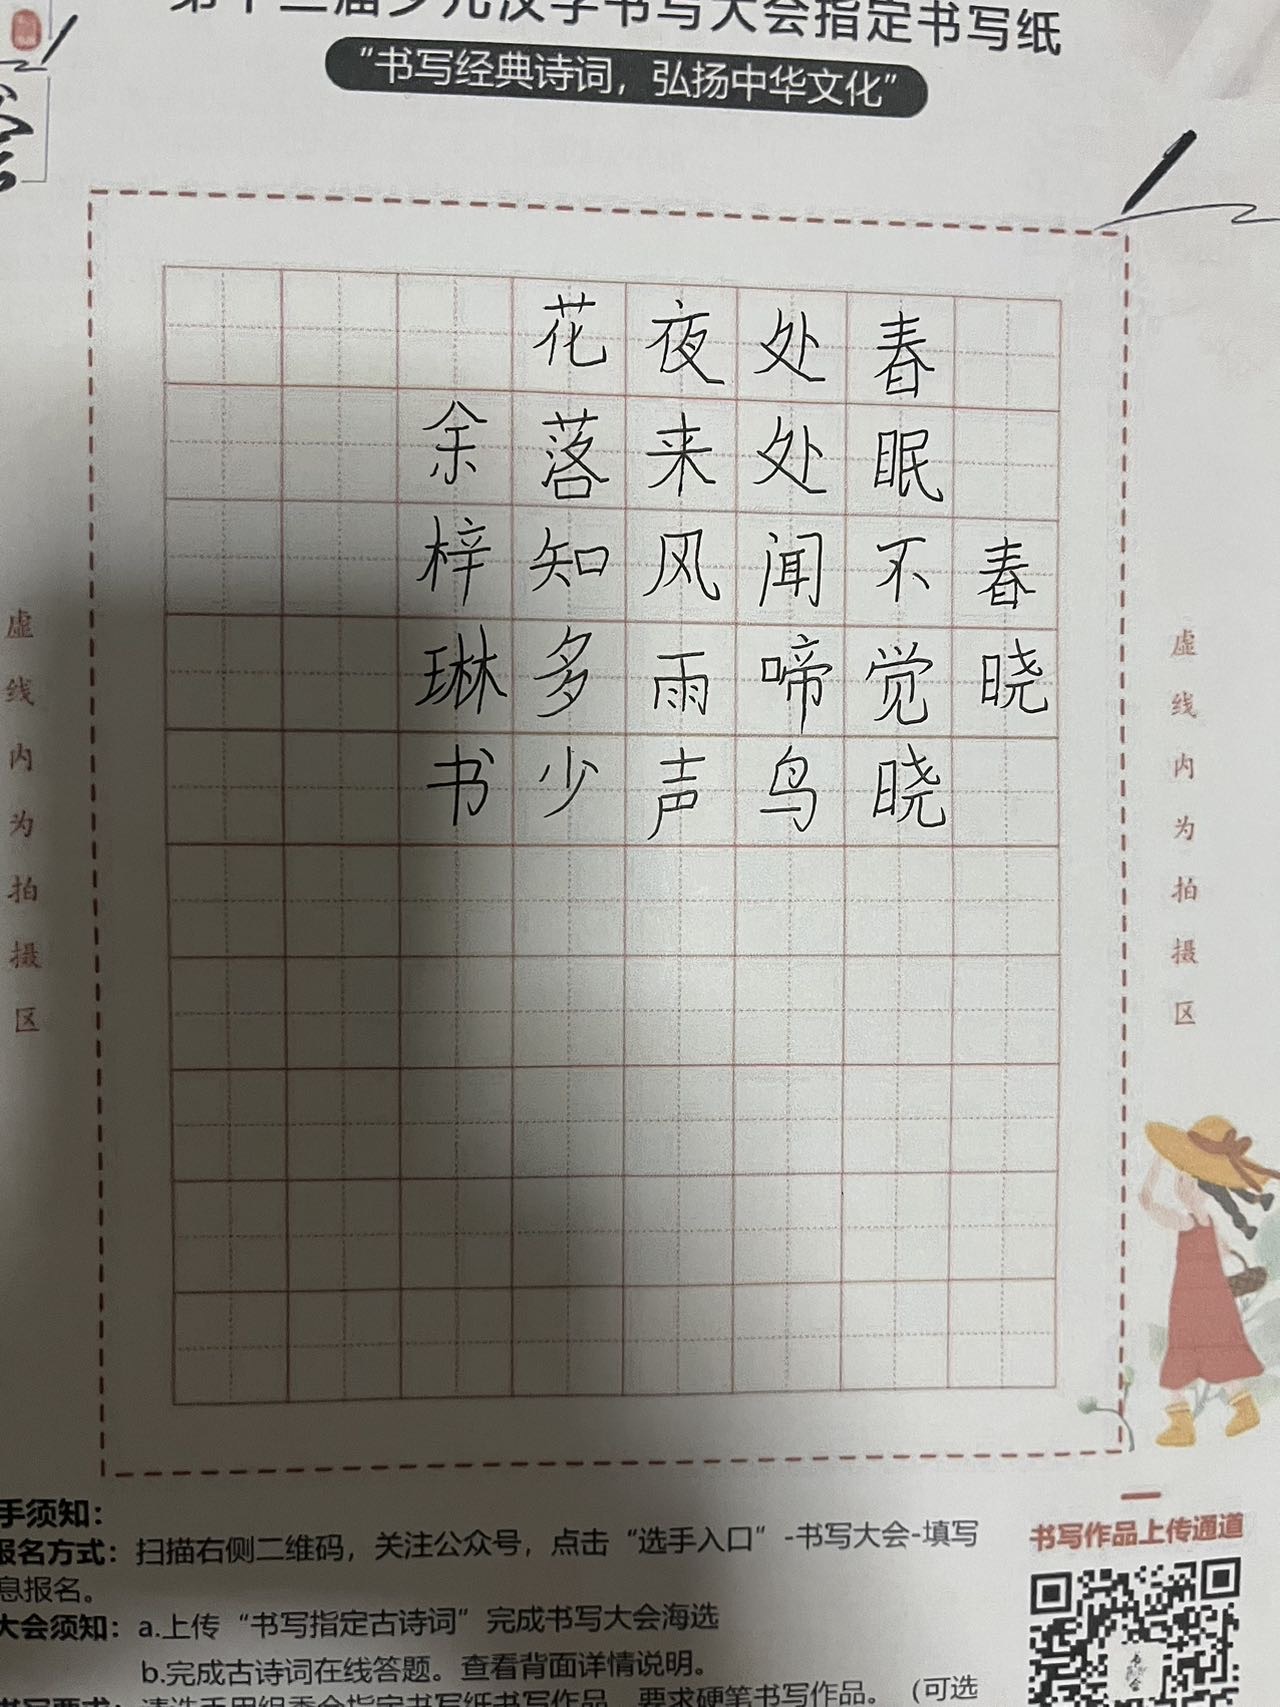 第十三届少儿汉字书写大会指定书写纸
“书写经典诗词，弘扬中华文化”
春晓
春眠不觉晓
处处闻啼鸟
夜来风雨声
花落知多少
余梓琳书
虚线内为拍摄区
虚线内为拍摄区
手须知：
报名方式：扫描右侧二维码，关注公众号，点击“选手入口”-书写大会-填写
息报名。
大会须知：a.上传“书写指定古诗词”完成书写大会海选
b.完成古诗词在线答题。查看背面详情说明。
书写要求：请选手用组委会指定书写纸书写作品，要求硬笔书写作品。（可选
书写作品上传通道